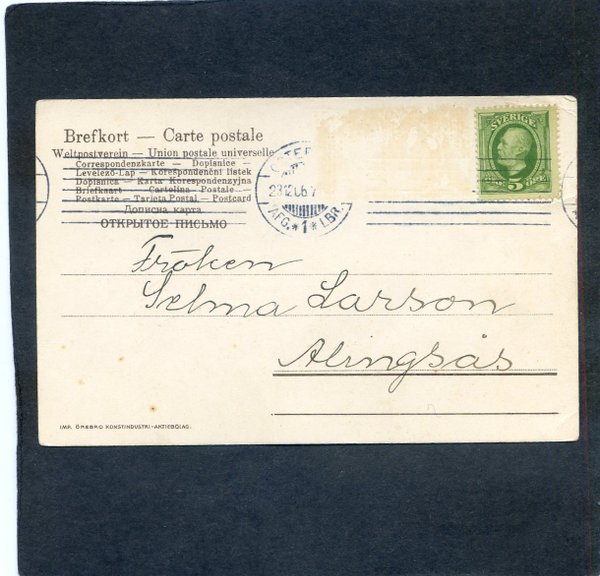 Brefkort — Carte postale
Weltpostverein — Union postale universelle
Correspondenzkarte — Dopisnice —
Levelező-Lap — Korespondenční listek
Dopisnica — Karta Korespondenzyjna
Briefkaart — Cartolina Postale —
Postkarte — Tarjeta Postal — Postcard
Дописна карта
ОТКРЫТОЕ ПИСЬМО
23 12 06 7
AFG. * 1 * LBR.
SVERIGE
5 ÖRE
Fröken
Selma Larson
Alingsås
IMP. ÖREBRO KONSTINDUSTRI-AKTIEBOLAG.